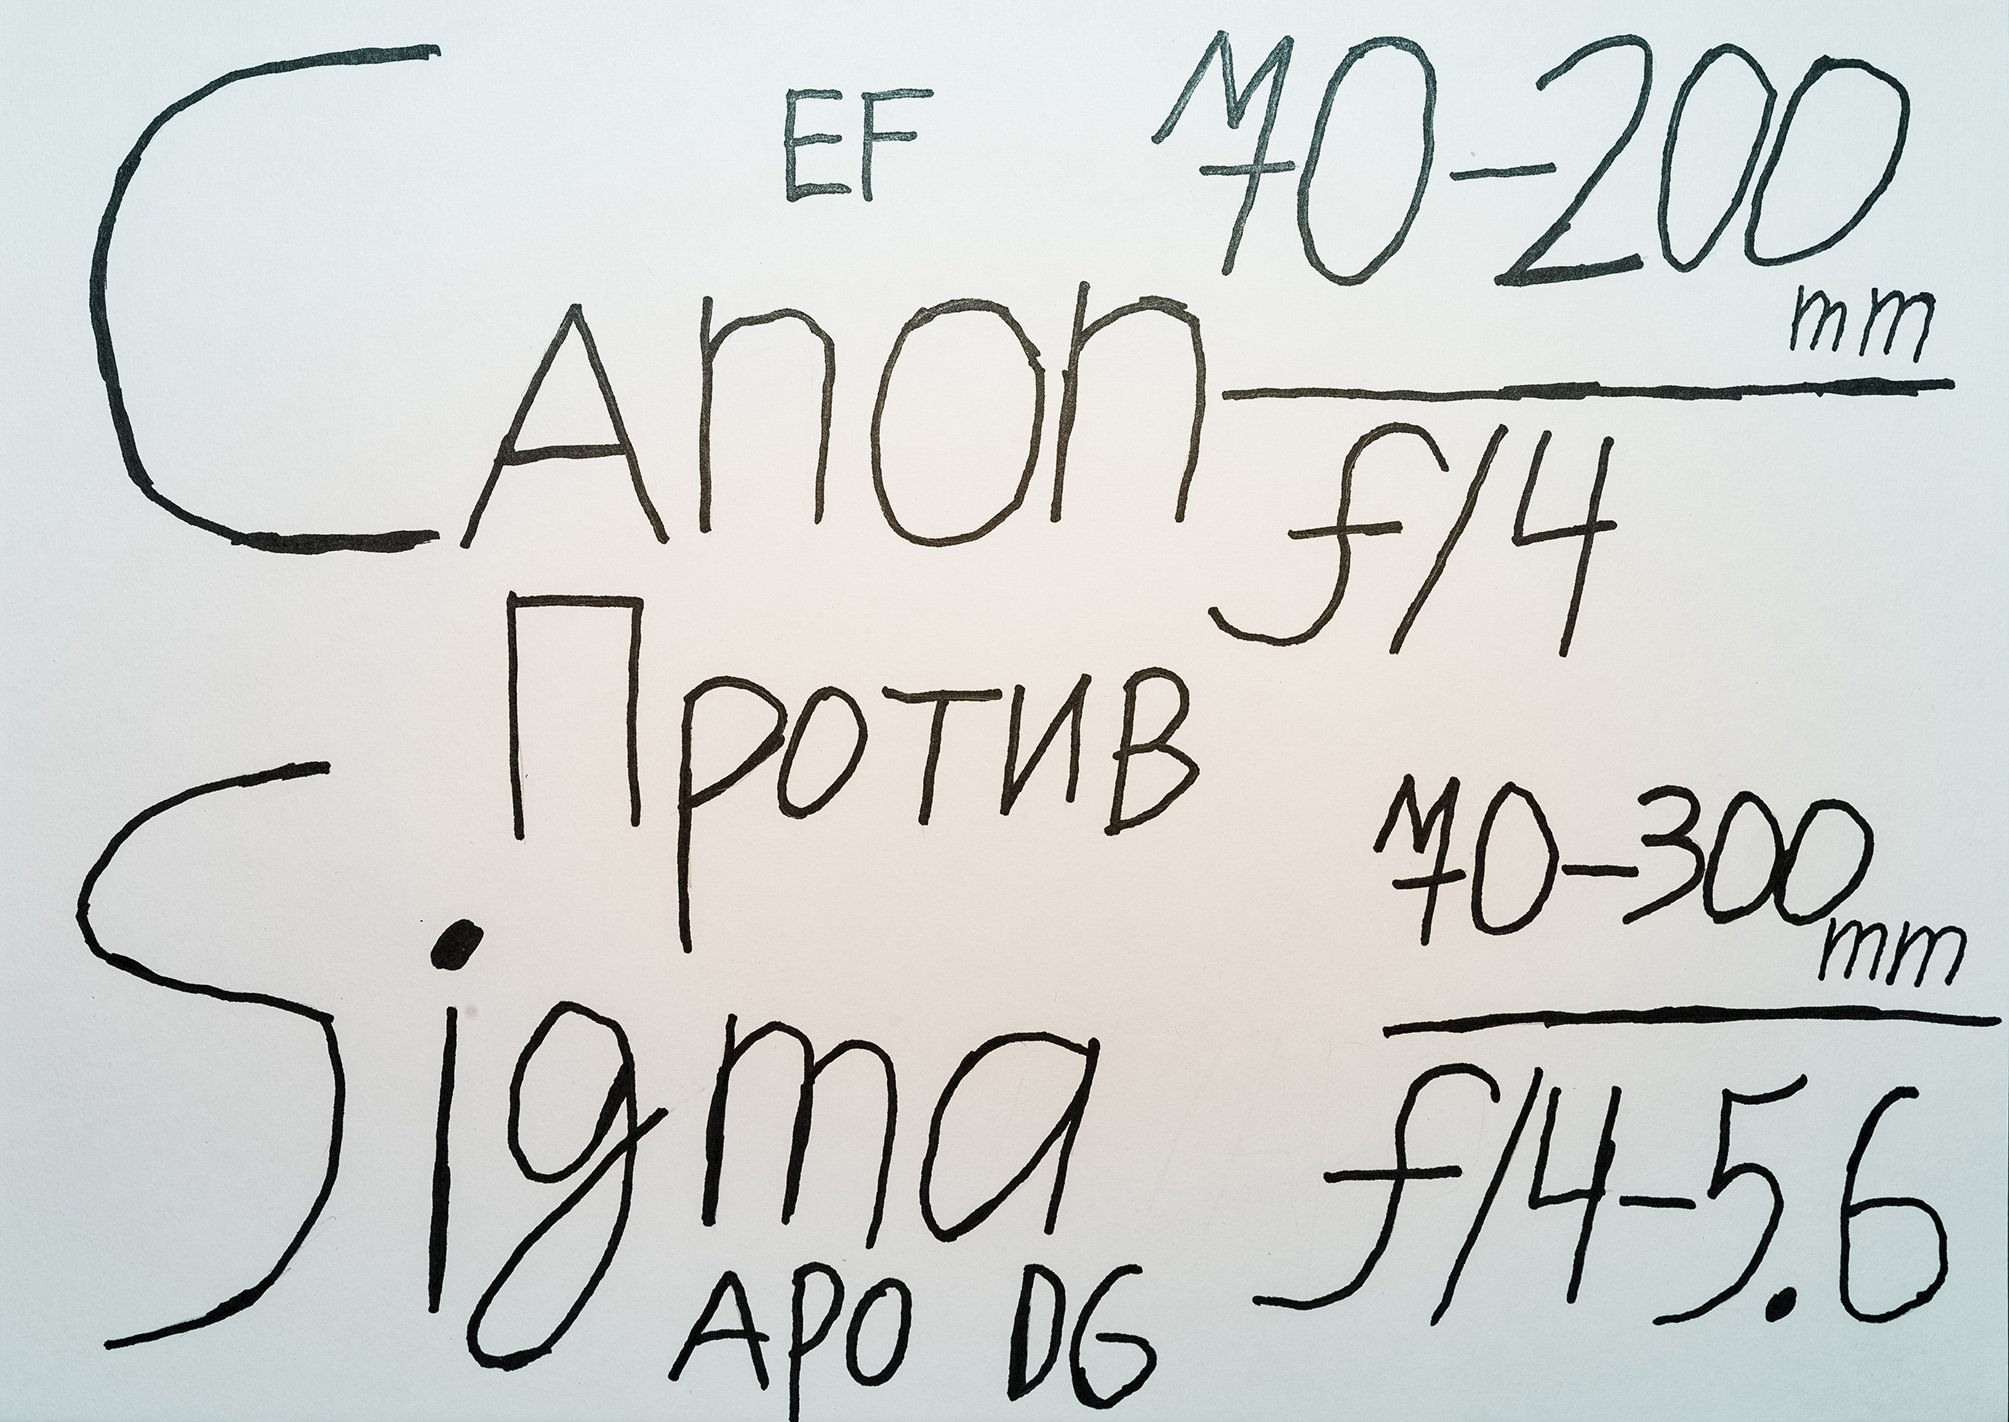 EF 70-200 mm
Canon f/4
Против
70-300 mm
Sigma f/4-5.6
APO DG